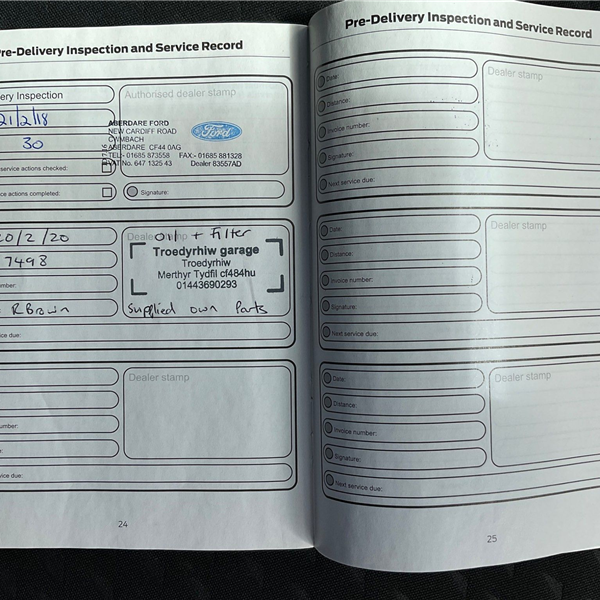 re-Delivery Inspection and Service Record
ery Inspection
21/2/18
30
service actions checked:
ce actions completed:
Authorised dealer stamp
ABERDARE FORD
NEW CARDIFF ROAD
CWMBACH
ABERDARE CF44 0AG
TEL - 01685 873558 FAX - 01685 881328
VAT No. 647 1325 43 Dealer 83557AD
Ford
Signature:
20/2/20
7498
mber:
R Brown
ce due:
Dealer stamp
oil + Filter
Troedyrhiw garage
Troedyrhiw
Merthyr Tydfil cf484hu
01443690293
supplied own Parts
Dealer stamp
mber:
ce due:
24
Pre-Delivery Inspection and Service Record
Date:
Distance:
Invoice number:
Signature:
Next service due:
Dealer stamp
Date:
Distance:
Invoice number:
Signature:
Next service due:
Dealer stamp
Date:
Distance:
Invoice number:
Signature:
Next service due:
Dealer stamp
25